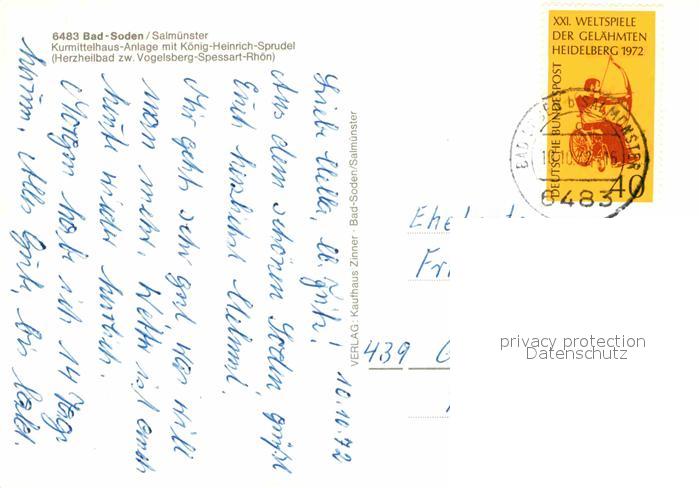 6483 Bad-Soden / Salmünster
Kurmittelhaus-Anlage mit König-Heinrich-Sprudel
(Herzheilbad zw. Vogelsberg-Spessart-Rhön)
XXI. WELTSPIELE
DER GELÄHMTEN
HEIDELBERG 1972
DEUTSCHE BUNDESPOST
40
BAD SODEN b SALMÜNSTER
10.10.72
6483
10.10.72
Liebe Ulla, lb. Fritz!
Aus dem schönen Soden, grüßt
Euch herzlichst
Mir geht sehr gut, was will
man mehr. Wetter ist auch
heute wieder herrlich.
Morgen habe ich 14 Tage
herum. Alles Gute, bis bald.
VERLAG: Kaufhaus Zinner · Bad-Soden/Salmünster
439
privacy protection
Datenschutz